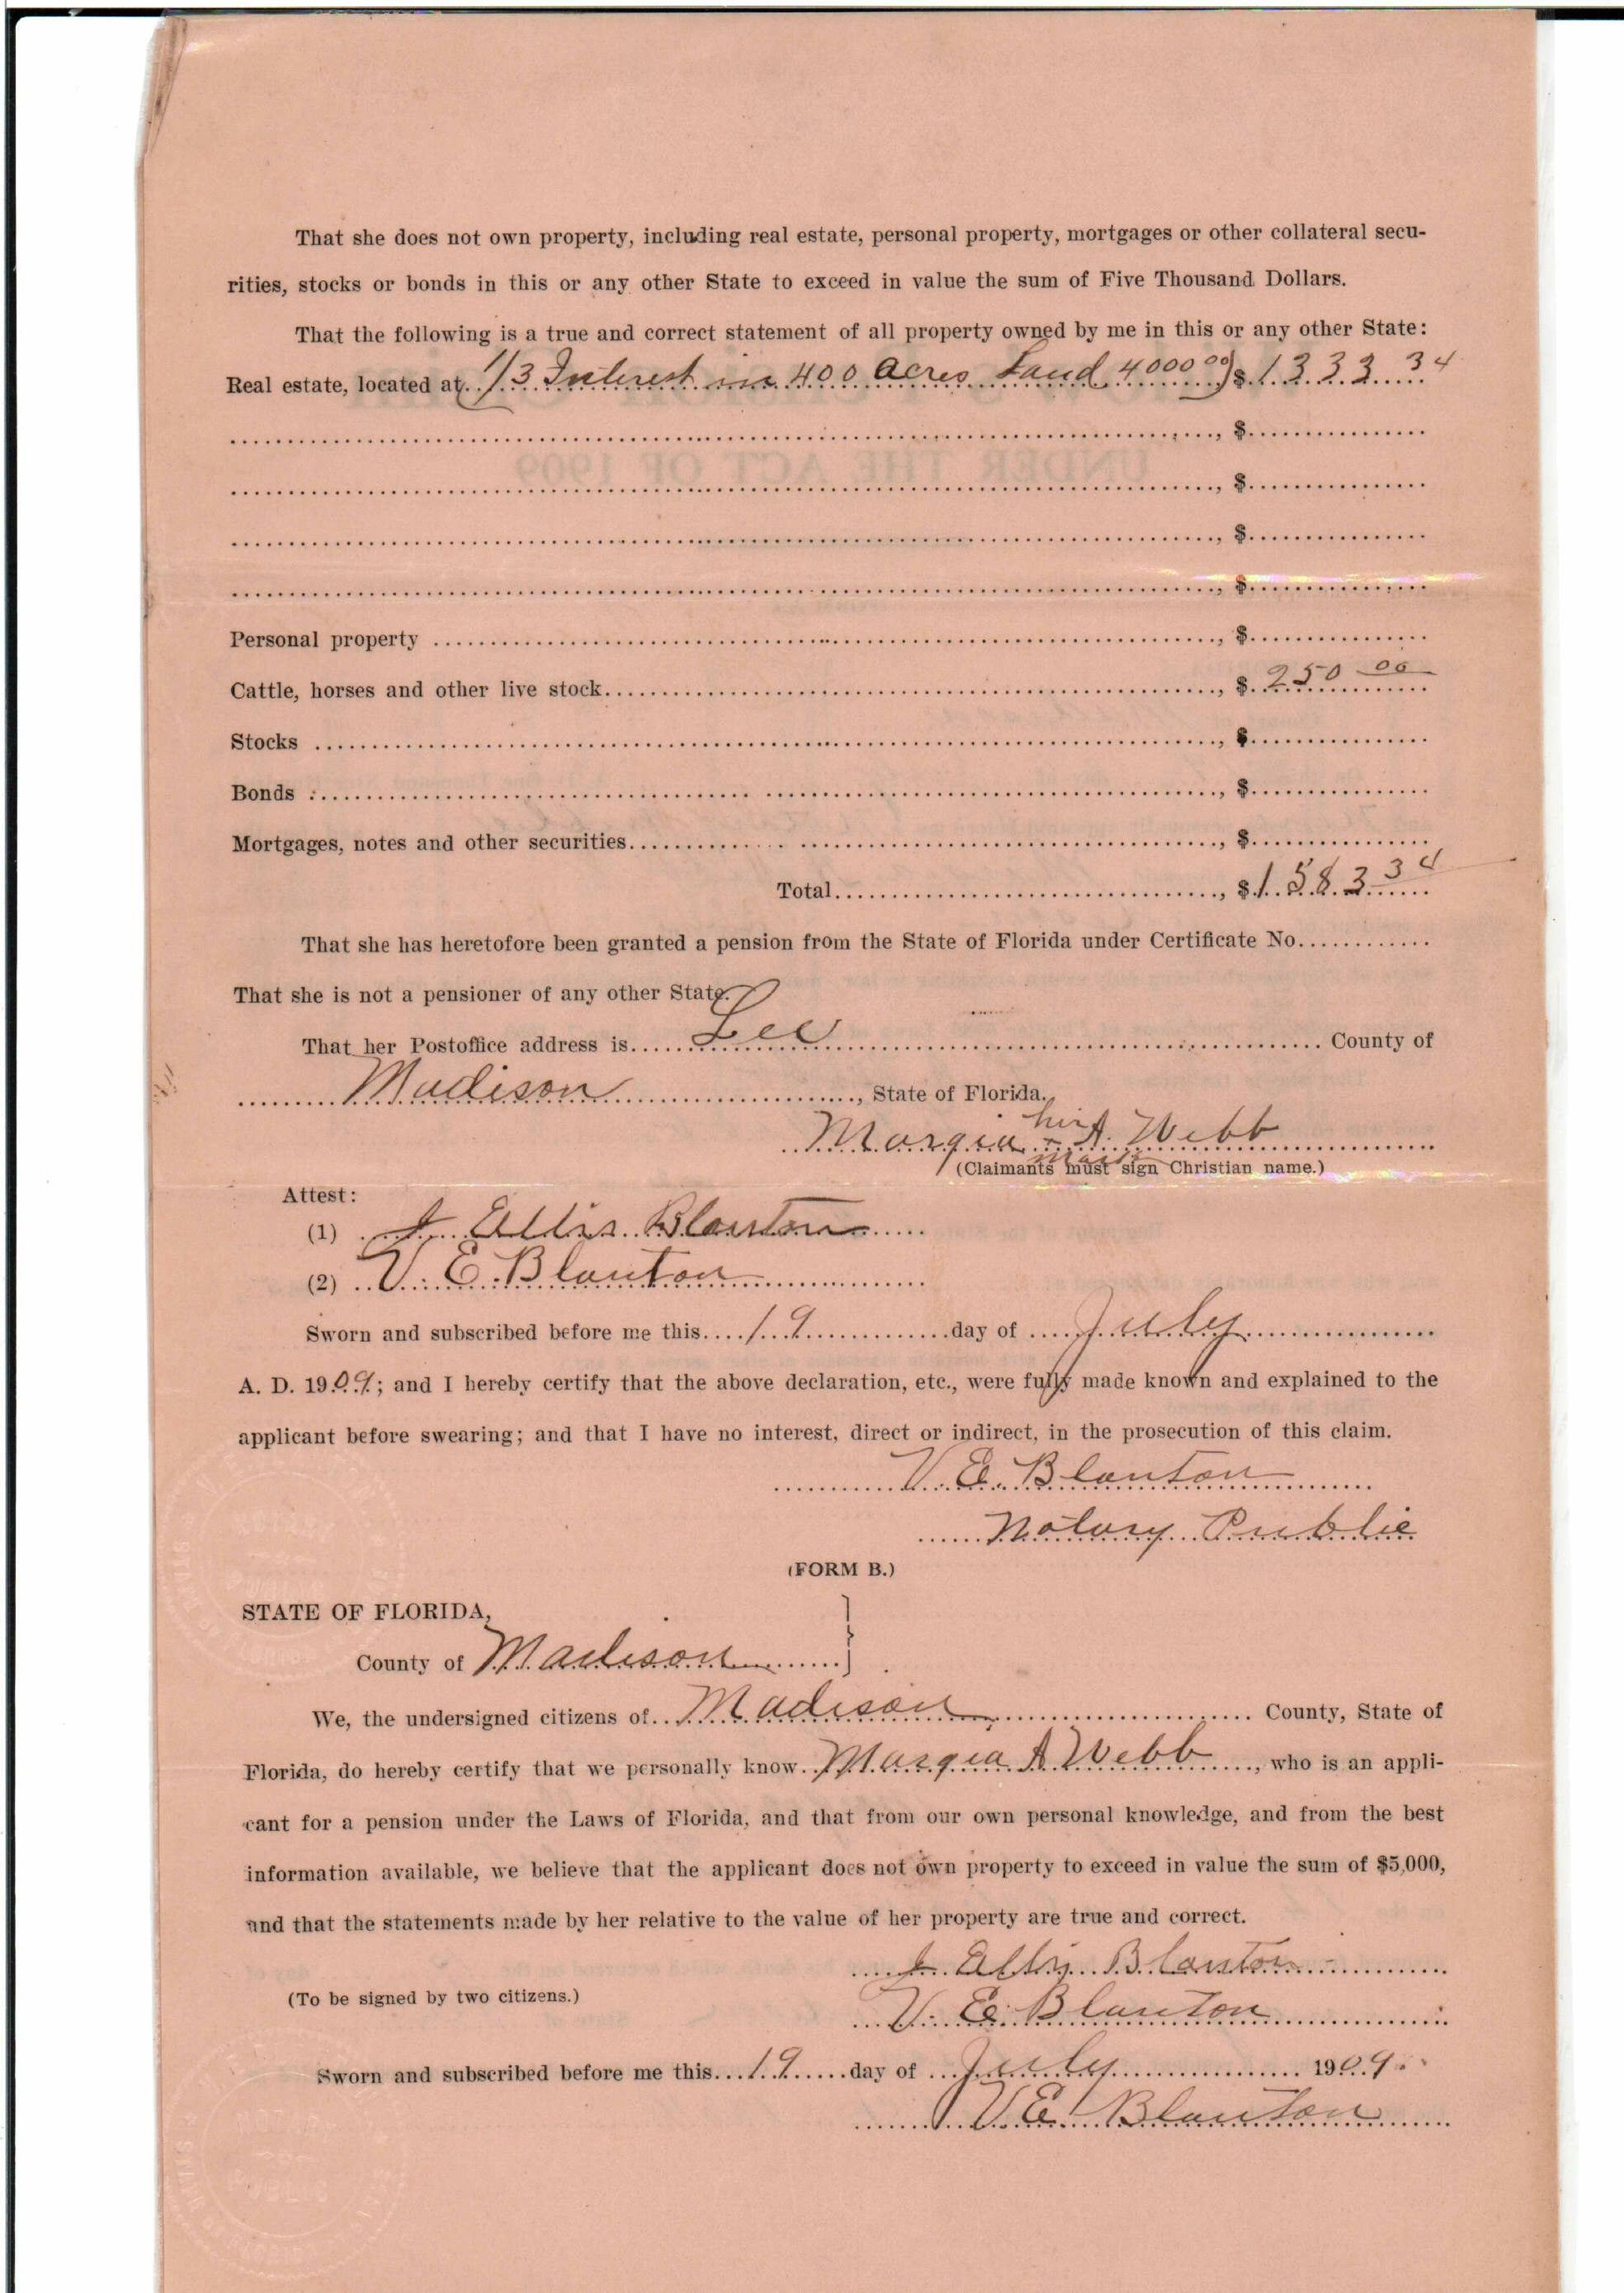 That she does not own property, including real estate, personal property, mortgages or other collateral secu-
rities, stocks or bonds in this or any other State to exceed in value the sum of Five Thousand Dollars.
That the following is a true and correct statement of all property owned by me in this or any other State:
Real estate, located at (1/3 Interest in 400 acres Land 4000 00) $1333 34
, $
UNDER THE ACT OF 1909
, $
, $
, $
Personal property , $
Cattle, horses and other live stock , $ 250 00
Stocks , $
Bonds , $
Mortgages, notes and other securities , $
Total , $1583 34
That she has heretofore been granted a pension from the State of Florida under Certificate No.
That she is not a pensioner of any other State.
That her Postoffice address is Lee County of
Madison, State of Florida.
her
Margia x A. Webb
mark
(Claimants must sign Christian name.)
Attest:
(1) J Ellis Blanton
(2) V. E. Blanton
Sworn and subscribed before me this 19 day of July
A. D. 1909; and I hereby certify that the above declaration, etc., were fully made known and explained to the
applicant before swearing; and that I have no interest, direct or indirect, in the prosecution of this claim.
V. E. Blanton
Notary Public
(FORM B.)
STATE OF FLORIDA,
County of Madison
We, the undersigned citizens of Madison County, State of
Florida, do hereby certify that we personally know Margia A Webb, who is an appli-
cant for a pension under the Laws of Florida, and that from our own personal knowledge, and from the best
information available, we believe that the applicant does not own property to exceed in value the sum of $5,000,
and that the statements made by her relative to the value of her property are true and correct.
J. Ellis Blanton
(To be signed by two citizens.)
V. E. Blanton
Sworn and subscribed before me this 19 day of July 1909.
V E Blanton